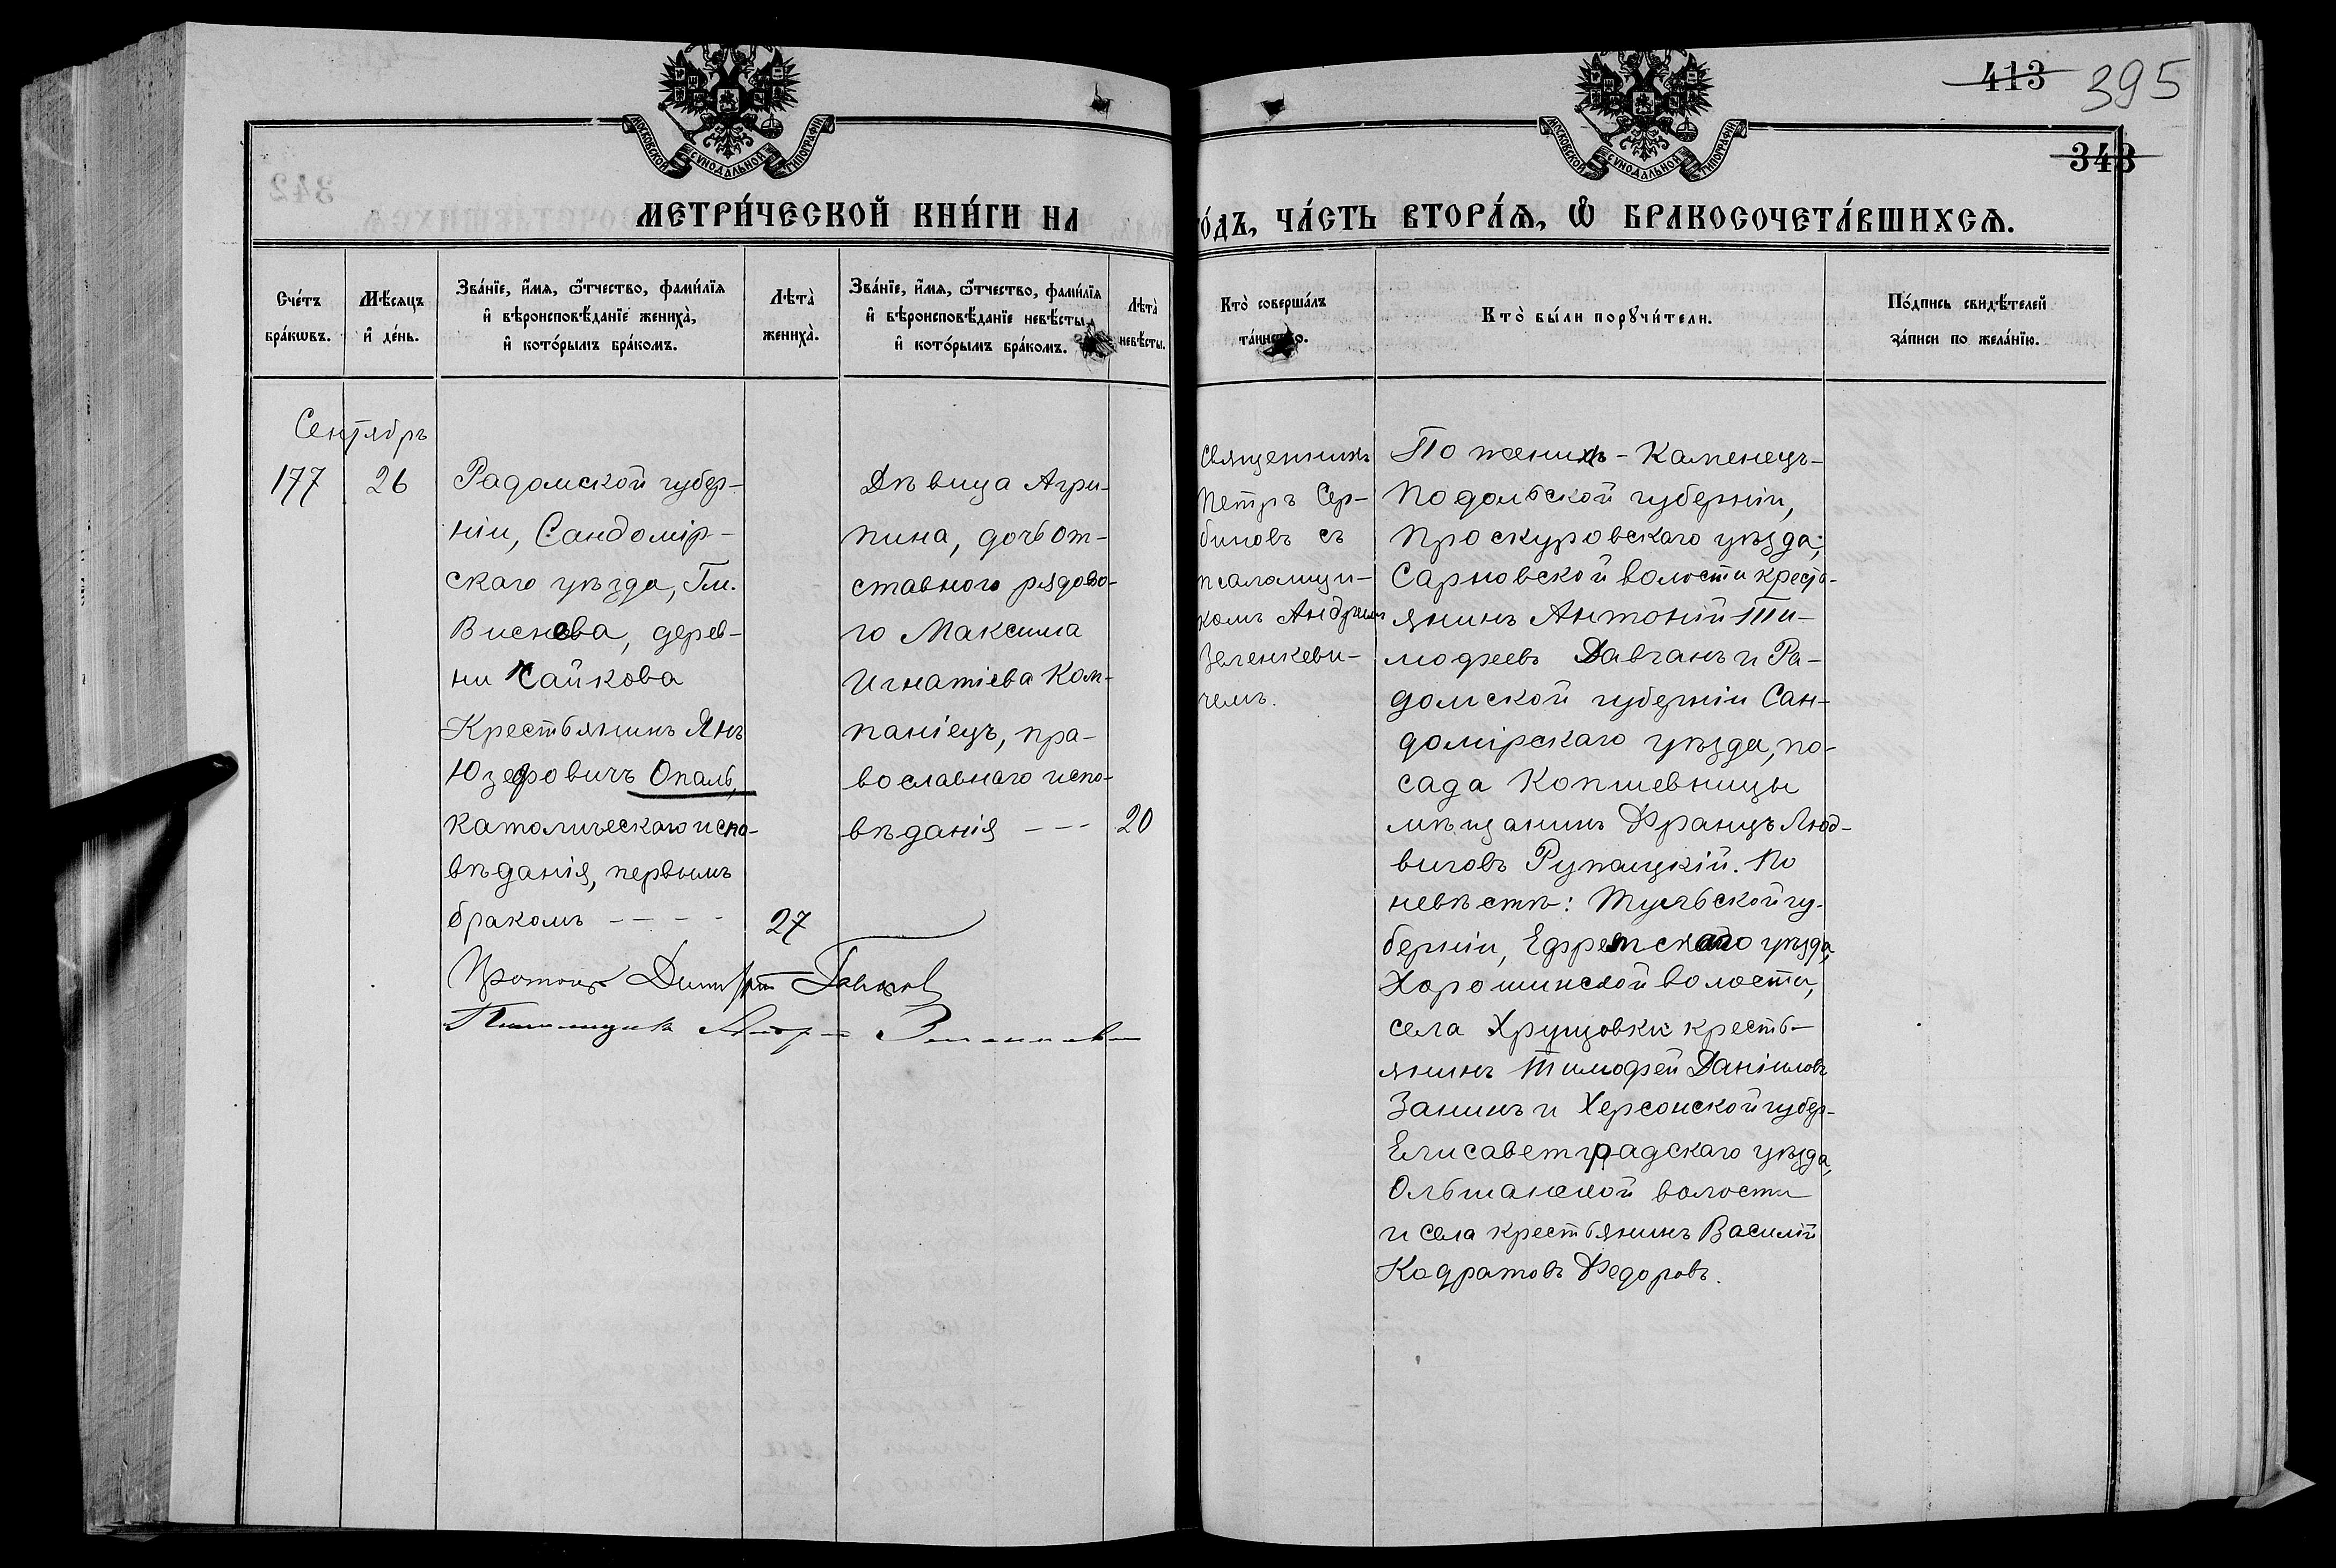 413 395
343
МОСКОВСКОЙ СѴНОДАЛЬНОЙ ТИПОГРАФІИ
МОСКОВСКОЙ СѴНОДАЛЬНОЙ ТИПОГРАФІИ
МЕТРИ́ЧЕСКОЙ КНИ́ГИ НА
ГО́ДЪ, ЧА́СТЬ ВТОРА́Ѧ, Ѽ БРАКОСОЧЕТА́ВШИХСѦ.
Сче́тъ
бра́кѡвъ.
Мѣ́сяцъ
и҆ де́нь.
Зва́нїе, и҆́мя, ѻ҆́тчество, фами́лїя
и҆ вѣроисповѣ́данїе жениха̀,
и҆ кото́рымъ бра́комъ.
Лѣта̀
жениха̀.
Зва́нїе, и҆́мя, ѻ҆́тчество, фами́лїя
и҆ вѣроисповѣ́данїе невѣ́сты,
и҆ кото́рымъ бра́комъ.
Лѣта̀
невѣ́сты.
Кто̀ соверша́лъ
та́инство.
Кто̀ бы́ли порꙋчи́тели.
По́дпись свидѣ́телей
за́писи по жела́нїю.
Сентябрь
177
26
Радомской губер-
ніи, Сандомір-
скаго уѣзда, Гм.
Виснева, дерев-
ни Чайкова
Крестьянинъ Янъ
Юзефовичъ Опаль,
католическаго испо-
вѣданія, первымъ
бракомъ - - - -
27
Дѣвица Агри-
пина, дочь от-
ставного рядово-
го Максима
Игнатіева Ком-
паніецъ, пра-
вославнаго испо-
вѣданія - - -
20
Протоіер Димитрій
Псаломщикъ
Священникъ
Петръ Сер-
биновъ съ
псаломщи-
комъ Андреемъ
Зеленкеви-
чемъ.
По женихѣ - Каменецъ-
Подольской губерніи,
Проскуровскаго уѣзда;
Сарновской волости кресть-
янинъ Антоній Ти-
мофеевъ Давганъ и Ра-
домской губерніи Сан-
домірскаго уѣзда, по-
сада Копшевницы
мѣщанинъ Францъ Люд-
виговъ Рупацкій. По
невѣстѣ: Тульской гу-
берніи, Ефремскаго уѣзда,
Хорошинской волости,
села Хрущовки кресть-
янинъ Тимофей Даніиловъ
Занинъ и Херсонской губер-
Елисаветградскаго уѣзда,
Ольшанской волости
и села крестьянинъ Василій
Кодратовъ Федоровъ.